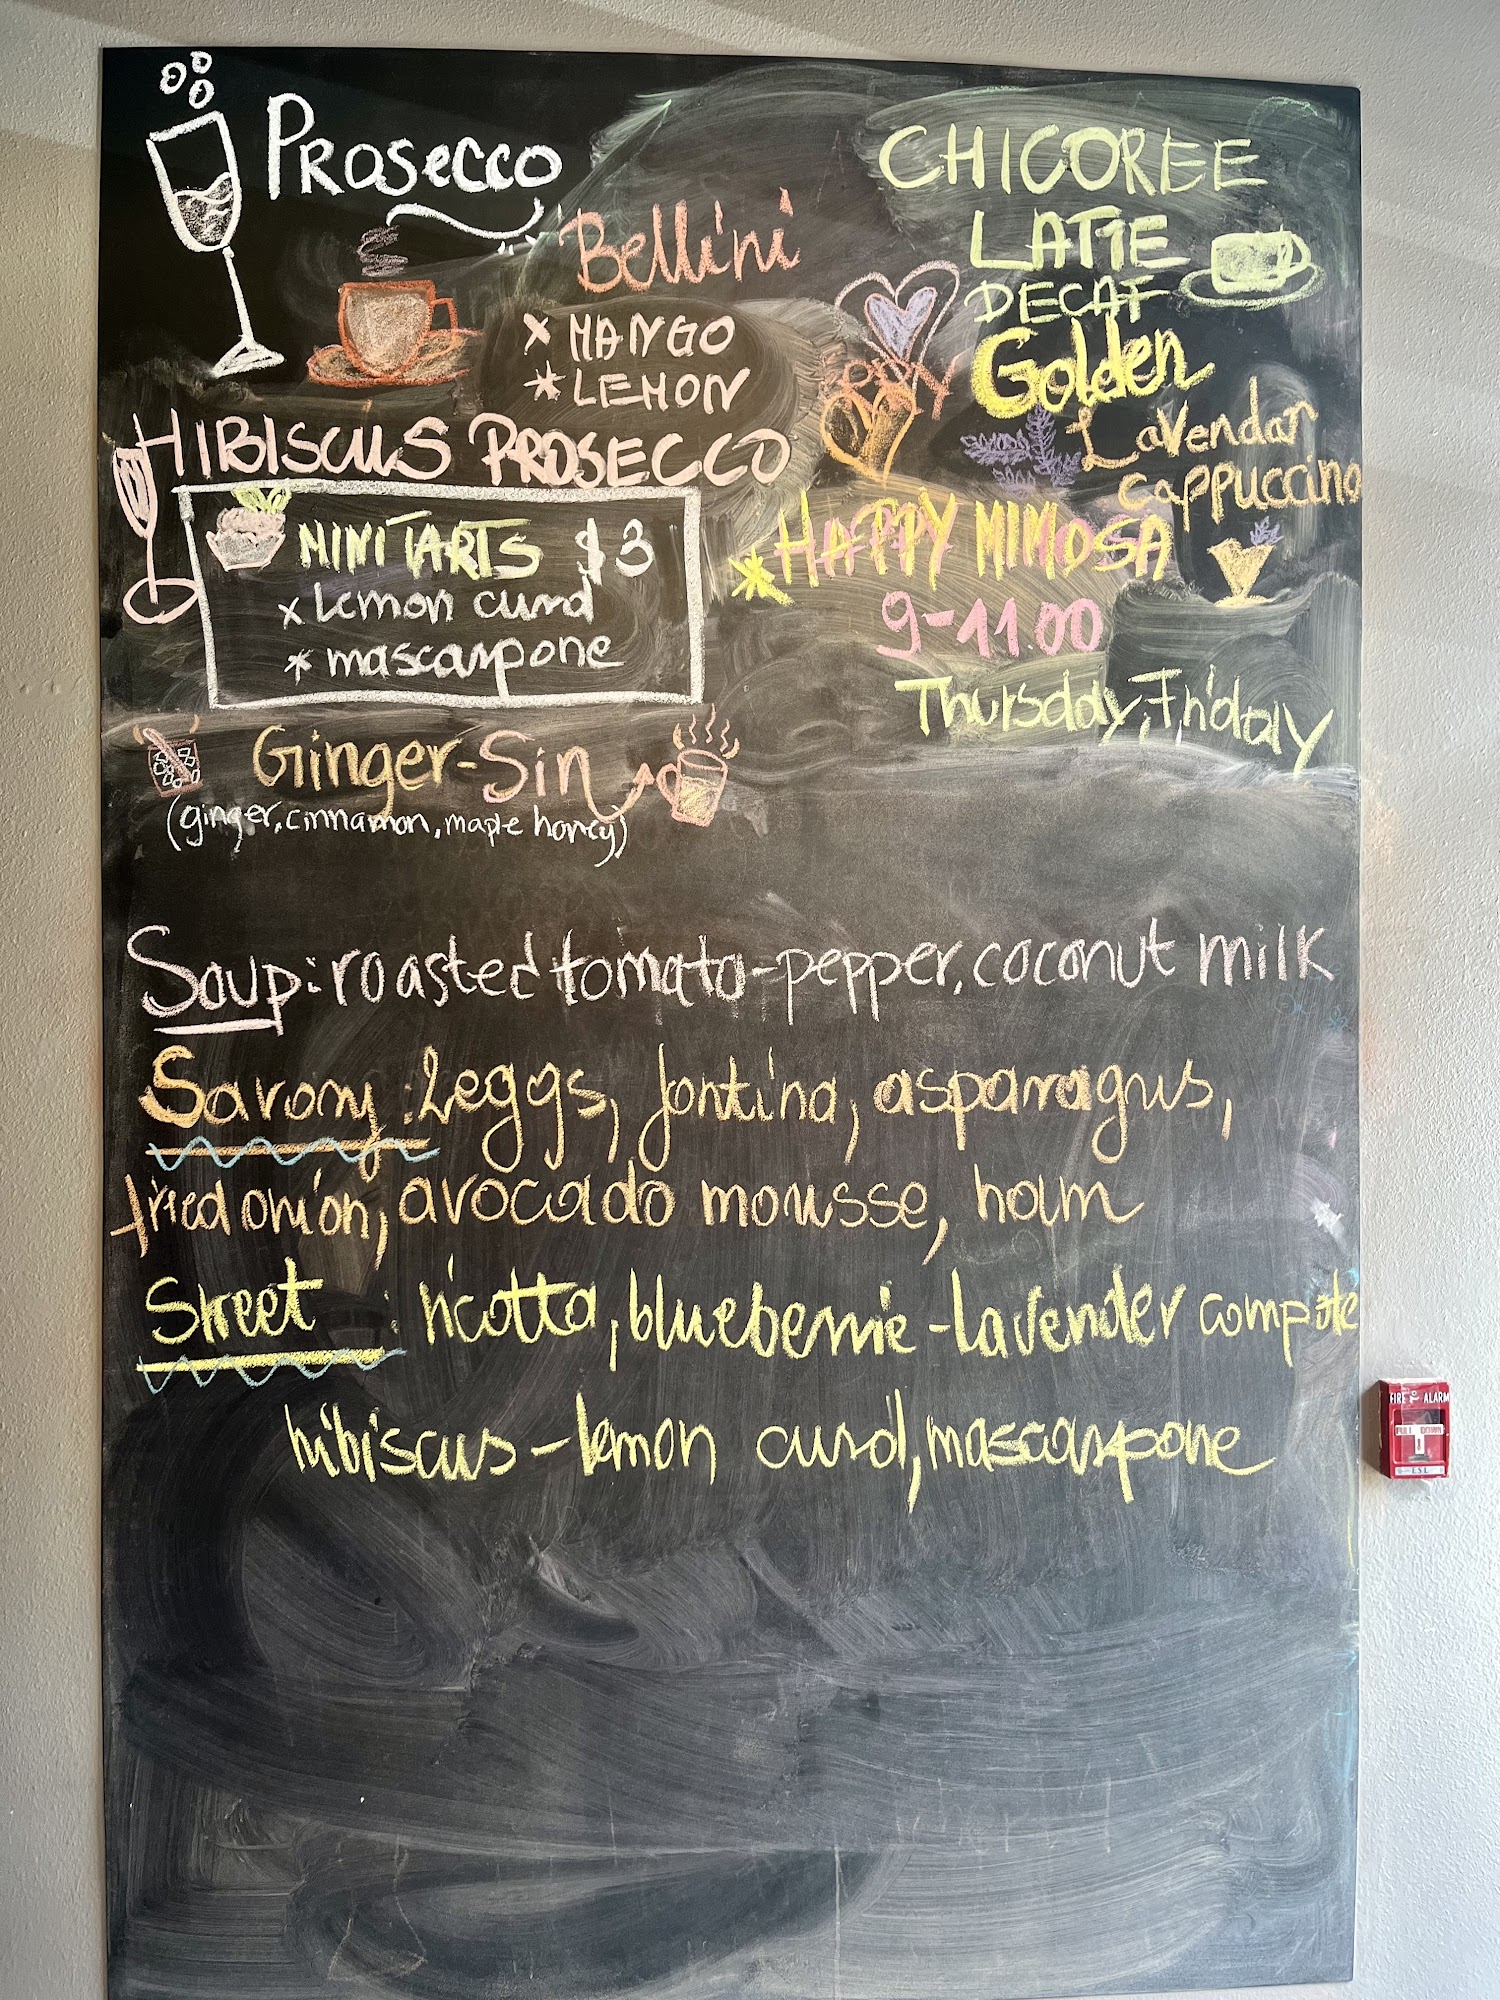 Prosecco
Bellini
x MANGO
* LEMON
HIBISCUS PROSECCO
MINI TARTS $3
x Lemon curd
* mascarpone
Ginger-Sin
(ginger, cinnamon, maple honey)
CHICOREE
LATTE
DECAF
Golden
Lavendar
cappuccino
* HAPPY MIMOSA
9-11.00
Thursday, Friday
Soup: roasted tomato-pepper, coconut milk
Savory: 2 eggs, fontina, asparagus,
fried onion, avocado mousse, ham
Street : ricotta, blueberrie-lavender compote
hibiscus-lemon curd, mascarpone
FIRE ALARM
PULL DOWN